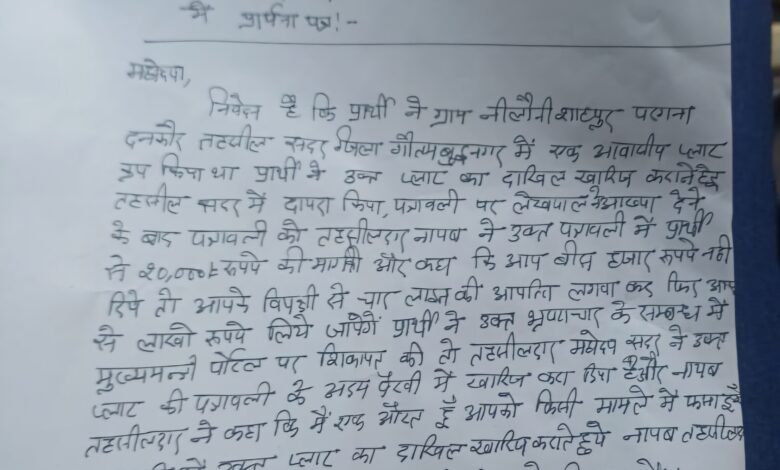 में प्रार्थना पत्र!-
महोदया,
निवेदन है कि प्रार्थी ने ग्राम नीलौनी शाहपुर परगना
दनकौर तहसील सदर जिला गौतमबुद्धनगर में एक आवासीय प्लाट
क्रय किया था प्रार्थी ने उक्त प्लाट का दाखिल खारिज कराने हेतु
तहसील सदर में दायरा किया, पत्रावली पर लेखपाल ने आख्या देने
के बाद पत्रावली को तहसीलदार नायब ने उक्त पत्रावली में प्रार्थी
से 20,000/- रुपये की मांग की और कहा कि आप बीस हजार रुपये नही
दिये तो आपके विपक्षी से चार लाख की आपत्ति लगवा कर फिर आप
से लाखो रुपये लिये जायेगें प्रार्थी ने उक्त भ्रष्टाचार के सम्बन्ध में
मुख्यमन्त्री पोर्टल पर शिकायत की तो तहसीलदार महोदय सदर ने उक्त
प्लाट की पत्रावली के अदम पैरवी में खारिज करा दिया है और नायब
तहसीलदार ने कहा कि मैं एक औरत हूँ आपको किसी मामले में
उक्त प्लाट का दाखिल खारिज कराते हुये नायब